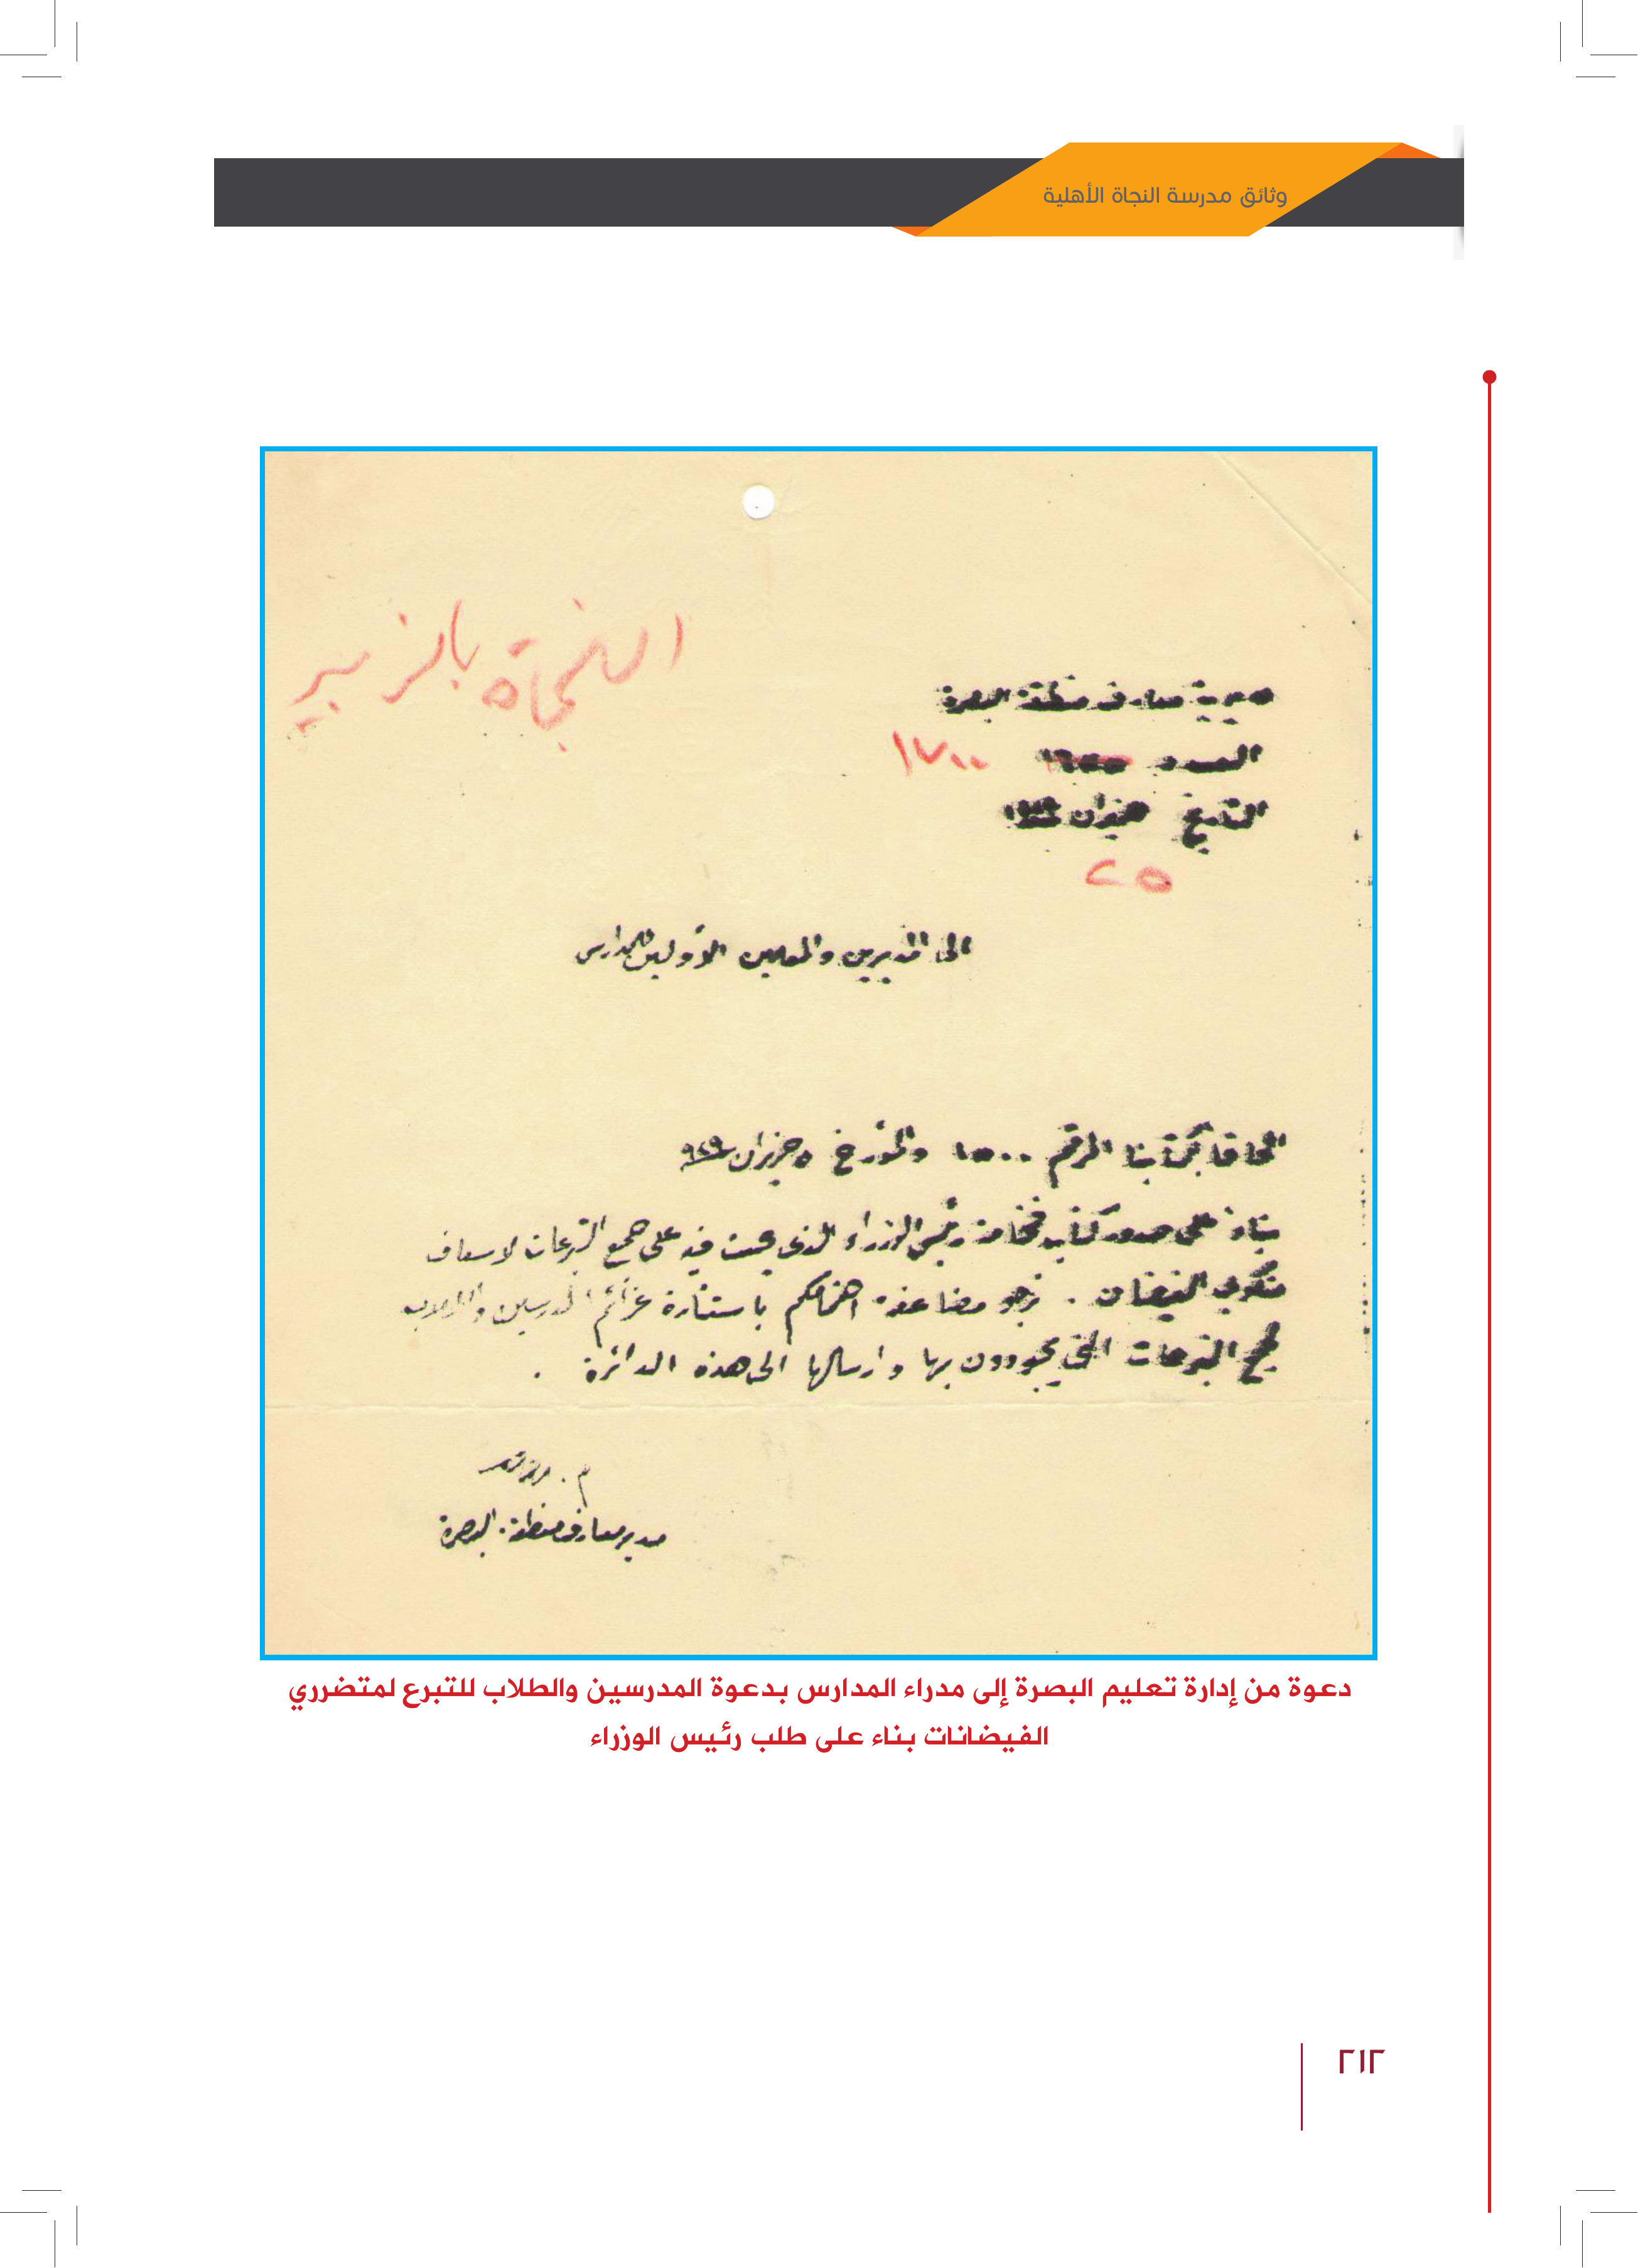 وثائق مدرسة النجاة الأهلية
النجاة بالزبير
مديرية معارف منطقة البصرة
العدد ١٧٠٠
التاريخ حزيران
٢٥
الى المديرين والمعلمين الأولين للمدارس
الحاقا بكتابنا المرقم ١٥٠٠ والمؤرخ ٥ حزيران ٩٢٩
بناء على صدور كتاب فخامة رئيس الوزراء الذي يحث فيه على جمع التبرعات لاسعاف
منكوبي الفيضان . نرجو مضاعفة اهتمامكم باستثارة عزائم المدرسين والطلاب
لجمع التبرعات التي يجودون بها وارسالها الى هذه الدائرة .
مدير معارف منطقة البصرة
دعوة من إدارة تعليم البصرة إلى مدراء المدارس بدعوة المدرسين والطلاب للتبرع لمتضرري
الفيضانات بناء على طلب رئيس الوزراء
٢١٢